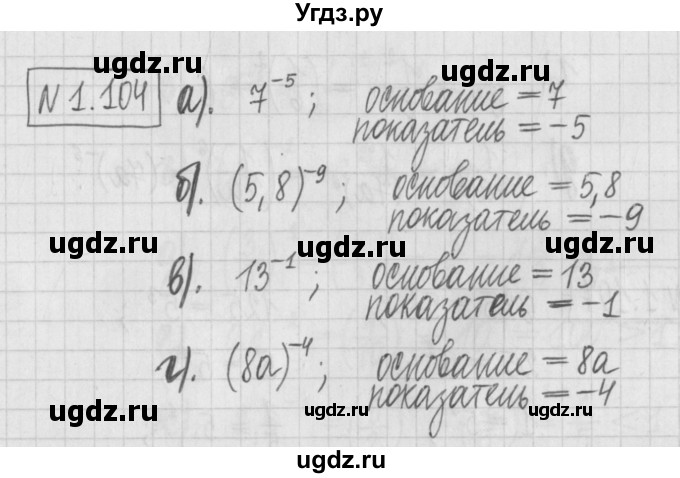 Угдз.ру
ugdz.ru ugdz.ru ugdz.ru
N 1.104 а). 7⁻⁵; основание = 7
показатель = -5
ugdz.ru ugdz.ru
б). (5,8)⁻⁹; основание = 5,8
показатель = -9
ugdz.ru ugdz.ru ugdz.ru
в). 13⁻¹; основание = 13
показатель = -1
ugdz.ru ugdz.ru
г). (8a)⁻⁴; основание = 8a
показатель = -4
ugdz.ru ugdz.ru ugdz.ru ugdz.ru
ugdz.ru